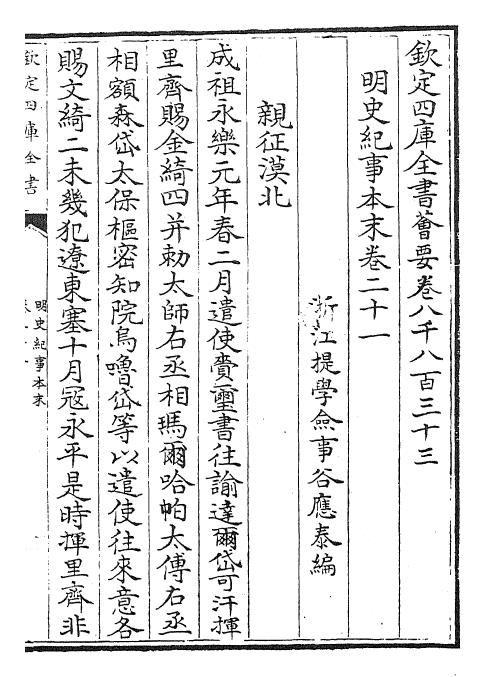 欽定四庫全書薈要卷八千八百三十三
明史紀事本末卷二十一
浙江提學僉事谷應泰編
親征漠北
成祖永樂元年春二月遣使賫璽書往諭達爾岱可汗揮
里齊賜金綺四并勅太師右丞相瑪爾哈帕太傅右丞
相額森岱太保樞密知院烏嚕岱等以遣使往來意各
賜文綺二未幾犯遼東塞十月冦永平是時揮里齊非
欽定四庫全書
明史紀事本末